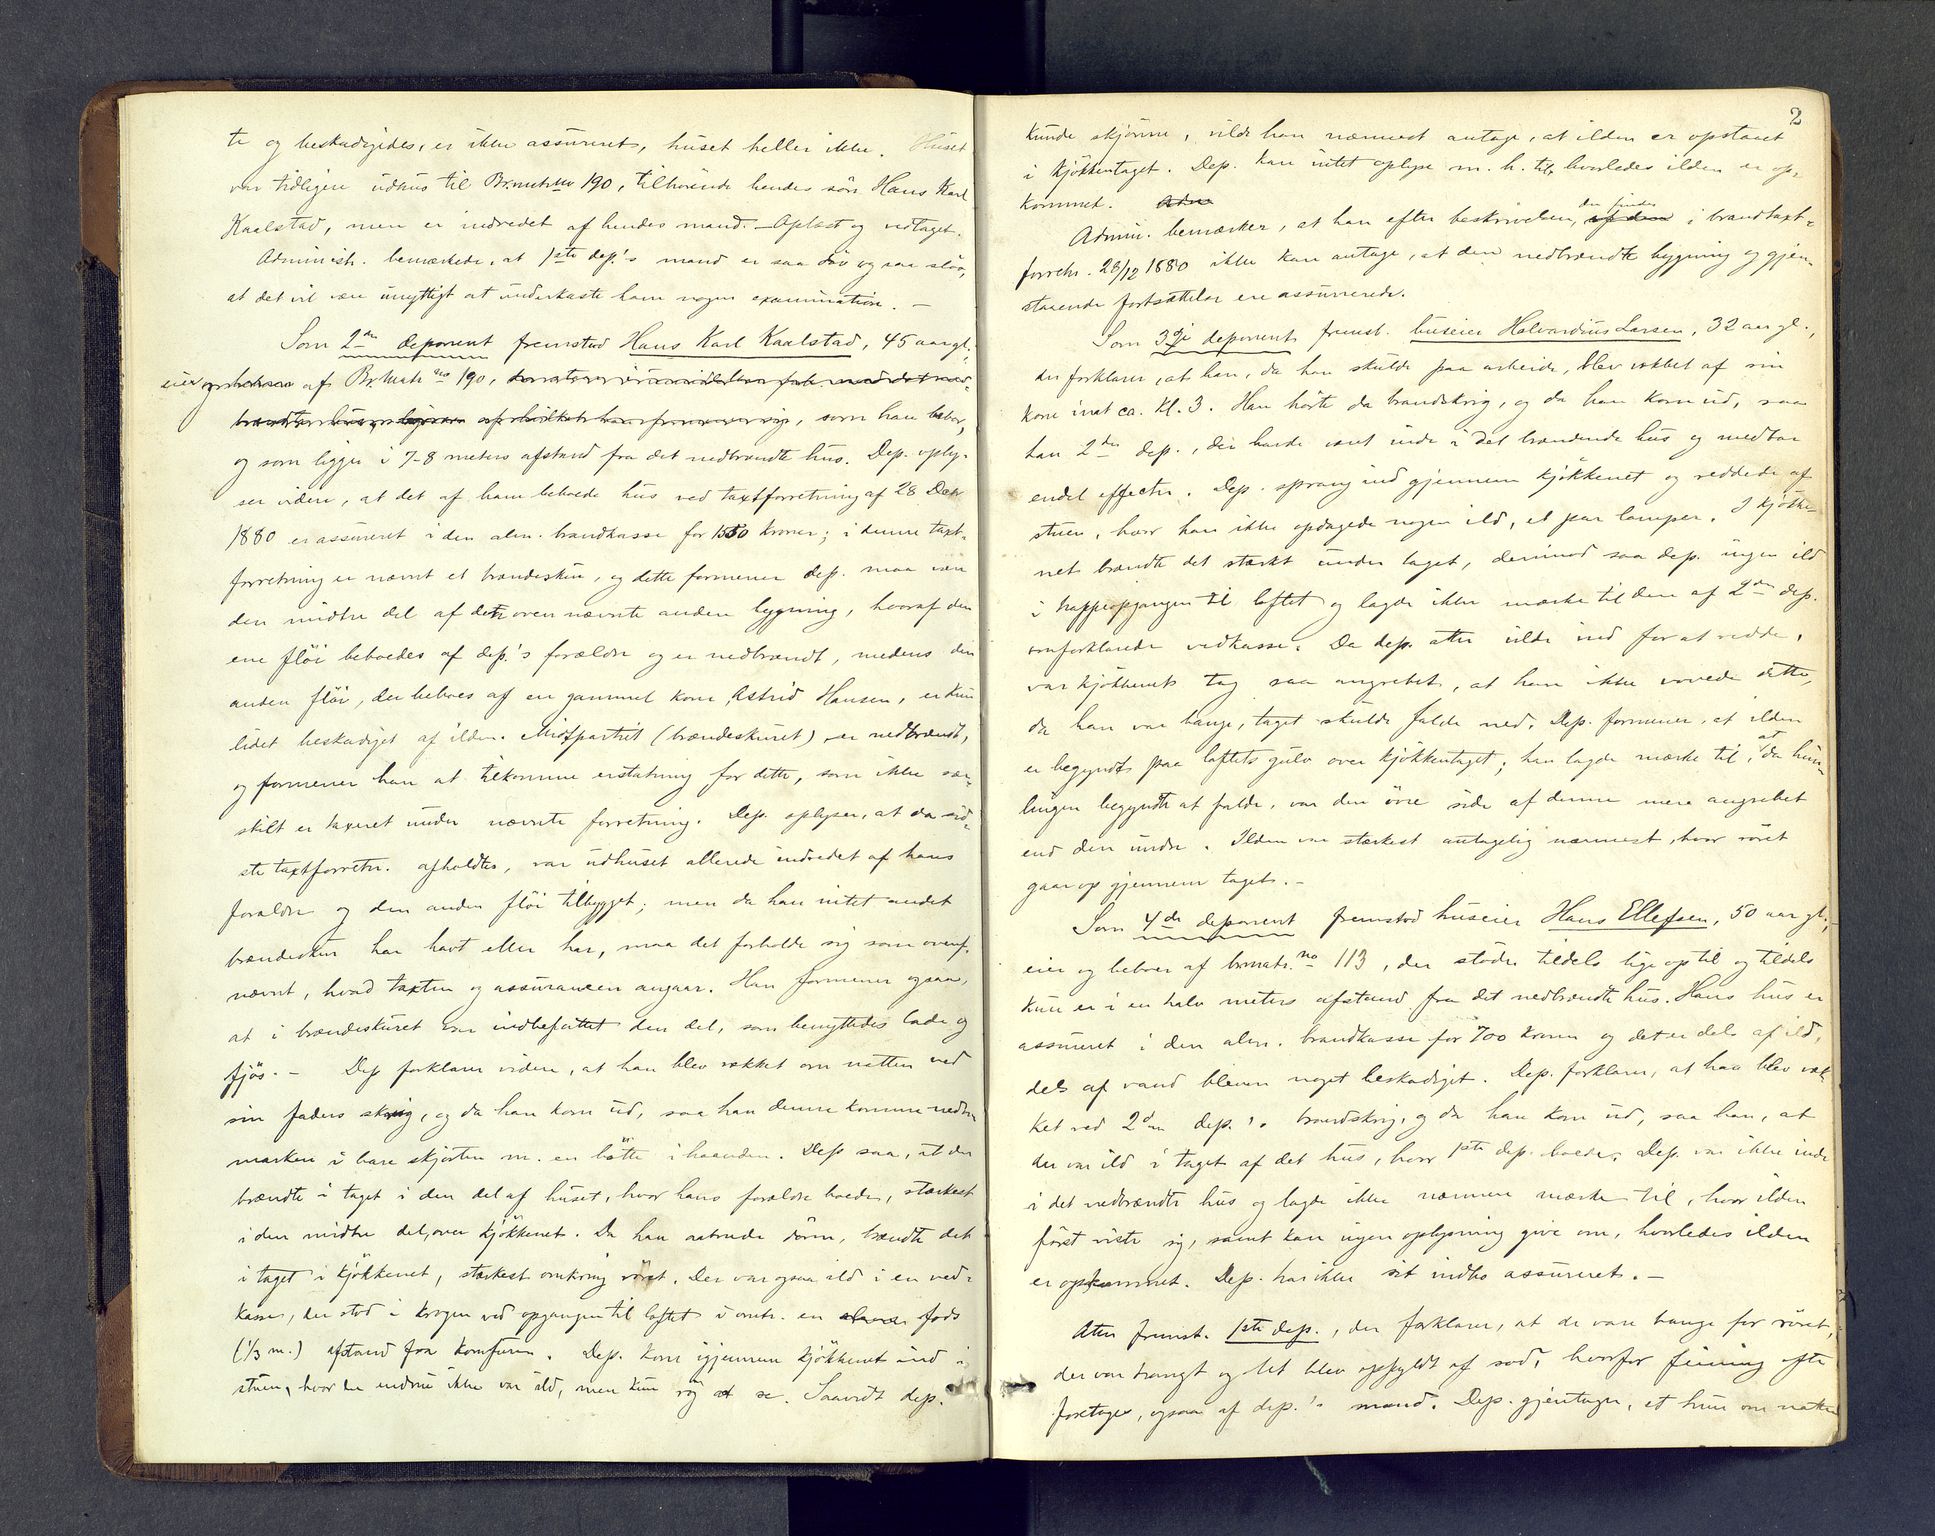 te og beskadigedes, er ikke assureret, huset heller ikke. Huset
var tidligere udhus til Br.matr. no 190, tilhørende hendes søn Hans Karl
Kaalstad, men er indredet af hendes mand. – Oplæst og vedtaget.
Administr. bemærkede, at 1ste dep.'s mand er saa døv og saa sløv,
at det vil være unyttigt at underkaste ham nogen examination. –
Som 2den deponent fremstod Hans Karl Kaalstad, 45 aar gl.,
eier af Br.matr. no 190, som han bebor,
og som ligger i 7-8 meters afstand fra det nedbrændte hus. Dep. oply-
ser videre, at det af ham beboede hus ved taxtforretning af 28 Decbr
1880 er assureret i den alm. brandkasse for 1550 kroner; i denne taxt-
forretning er nævnt et brændeskur, og dette formener dep. maa være
den midtre del af den ovennævnte anden bygning, hvoraf den
ene fløi beboedes af dep.'s forældre og er nedbrændt, medens den
anden fløi, der beboes af en gammel kone, Astrid Hansen, er kun
lidet beskadiget af ilden. Midtpartiet (brændeskuret) er nedbrændt,
og formener han at tilkomme erstatning for dette, som ikke sær-
skilt er taxeret under nævnte forretning. Dep. oplyser, at da sid-
ste taxtforretn. afholdtes, var udhuset allerede indredet af hans
forældre og den anden fløi tilbygget; men da han intet andet
brændeskur har havt eller har, maa det forholde sig som ovenf.
nævnt, hvad taxten og assurancen angaar. Han formener ogsaa,
at i brændeskuret var indbefattet den del, som benyttedes lade og
fjøs. – Dep. forklarer videre, at han blev vækket om natten ved
sin faders skrig, og da han kom ud, saa han denne komme nedover
marken i bare skjorten m. en bøtte i haanden. Dep. saa, at det
brændte i taget i den del af huset, hvor hans forældre boede, stærkest
i den midtre del, over kjøkkenet. Da han aabnede døren, brændte det
i taget i kjøkkenet, stærkest omkring røret. Der var ogsaa ild i en ved-
kasse, der stod i krogen ved opgangen til loftet i omtr. en fods
(1/3 m.) afstand fra komfuren. Dep. kom igjennem kjøkkenet ind i
stuen, hvor der endnu ikke var ild, men kun røg at se. Saavidt dep.
2
kunde skjønne, vilde han nærmest antage, at ilden er opstaaet
i kjøkkentaget. Dep. kan intet oplyse m. h. til, hvorledes ilden er op-
kommet.
Admin. bemærker, at han efter beskrivelsen, der findes i brandtaxt-
forretn. 28/12 1880 ikke kan antage, at den nedbrændte bygning og gjen-
staaende fortsættelse ere assurerede.
Som 3dje deponent fremst. huseier Halvardius Larsen, 32 aar gl.,
der forklarer, at han, da han skulde paa arbeide, blev vækket af sin
kone inat ca. Kl. 3. Han hørte da brandskrig, og da han kom ud, saa
han 2den dep., der havde været inde i det brændende hus og medtar
endel effecter. Dep. sprang ind gjennem kjøkkenet og reddede af
stuen, hvor han ikke opdagede nogen ild, et par lamper. I kjøkke-
net brændte det stærkt under taget, derimod saa dep. ingen ild
i trappeopgangen til loftet og lagde ikke mærke til den af 2den dep.
omforklarede vedkasse. Da dep. atter vilde ind for at redde,
var kjøkkenets tag saa angrebet, at han ikke vovede dette,
da han var bange, taget skulde falde ned. Dep. formener, at ilden
er begyndt paa loftets gulv over kjøkkentaget; han lagde mærke til, at da him-
lingen begyndte at falde, var den øvre side af denne mere angrebet
end den undre. Ilden var stærkest antagelig nærmest, hvor røret
gaar op gjennem taget. –
Som 4de deponent fremstod huseier Hans Ellefsen, 50 aar gl.,
eier og beboer af br.matr. no 113, der støder tildels lige op til og tildels
kun er i en halv meters afstand fra det nedbrændte hus. Hans hus er
assureret i den alm. brandkasse for 700 kroner og det er dels af ild,
dels af vand bleven noget beskadiget. Dep. forklarer, at han blev væk-
ket ved 2den dep.'s brandskrig, og da han kom ud, saa han, at
der var ild i taget af det hus, hvor 1ste dep. boede. Dep. var ikke inde
i det nedbrændte hus og lagde ikke nærmere mærke til, hvor ilden
først viste sig, samt kan ingen oplysning give om, hvorledes ilden
er opkommet. Dep. har ikke sit indbo assureret. –
Atter fremst. 1ste dep., der forklarer, at de vare bange for røret,
der var trangt og let blev opfyldt af sod, hvorfor feining ofte
foretoges, ogsaa af dep.'s mand. Dep. gjentager, at hun om natten